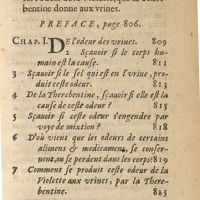 bentine donne aux vrines.
PREFACE, page 806.
CHAP. I. DE l'odeur des vrines. 809
2 Sçauoir si le corps hu-
main est la cause. 811
3 Sçauoir si le sel qui est en l'vrine, pro-
duit ceste odeur. 813
4 De la Therebentine, sçauoir si elle est la
cause de ceste odeur? 815
5 Sçauoir si ceste odeur s'engendre par
voye de mixtion? 818
6 D'où vient que les odeurs de certains
aliments & medicamens, se conser-
uent, ou se perdent dans les corps: 819
7 Comment se produit ceste odeur de la
Violette aux vrines, par la There-
bentine. 823